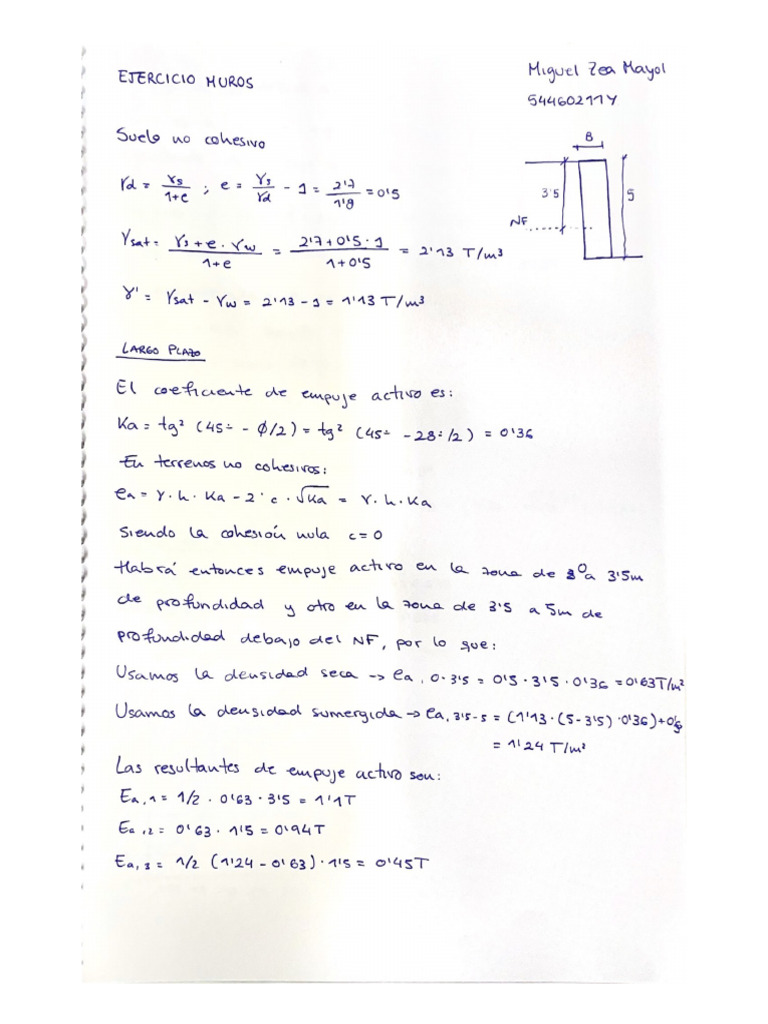 EJERCICIO MUROS
Miguel Zea Mayol
54460211Y
Suelo no cohesivo
γd = γs / 1+e ; e = γs / γd - 1 = 2'7 / 1'8 = 0'5
γsat = γs + e · γw / 1+e = 2'7 + 0'5 · 1 / 1 + 0'5 = 2'13 T/m³
γ' = γsat - γw = 2'13 - 1 = 1'13 T/m³
B
3'5
5
NF
LARGO PLAZO
El coeficiente de empuje activo es:
Ka = tg² (45º - ϕ/2) = tg² (45º - 28º/2) = 0'36
En terrenos no cohesivos:
ea = γ · h · Ka - 2 · c · √Ka = γ · h · Ka
Siendo la cohesión nula c=0
Habrá entonces empuje activo en la zona de 0 a 3'5m
de profundidad y otro en la zona de 3'5 a 5m de
profundidad debajo del NF, por lo que:
Usamos la densidad seca → ea, 0-3'5 = 0'5 · 3'5 · 0'36 = 0'63 T/m²
Usamos la densidad sumergida → ea, 3'5-5 = (1'13 · (5-3'5) · 0'36) +
= 1'24 T/m²
Las resultantes de empuje activo son:
Ea,1 = 1/2 · 0'63 · 3'5 = 1'1T
Ea,2 = 0'63 · 1'5 = 0'94T
Ea,3 = 1/2 (1'24 - 0'63) · 1'5 = 0'45T